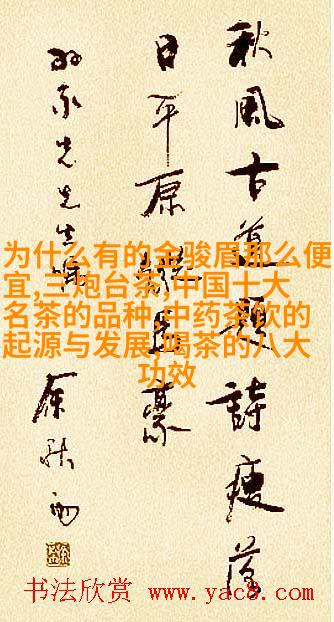 秋風古道題詩瘦落
日平原馬豪
先生
余秋雨
为什么有的金骏眉那么便
宜,三炮台茶,中国十大
名茶的品种,中药茶饮的
起源与发展,喝茶的八大
功效
书法欣赏 www.yac8.com